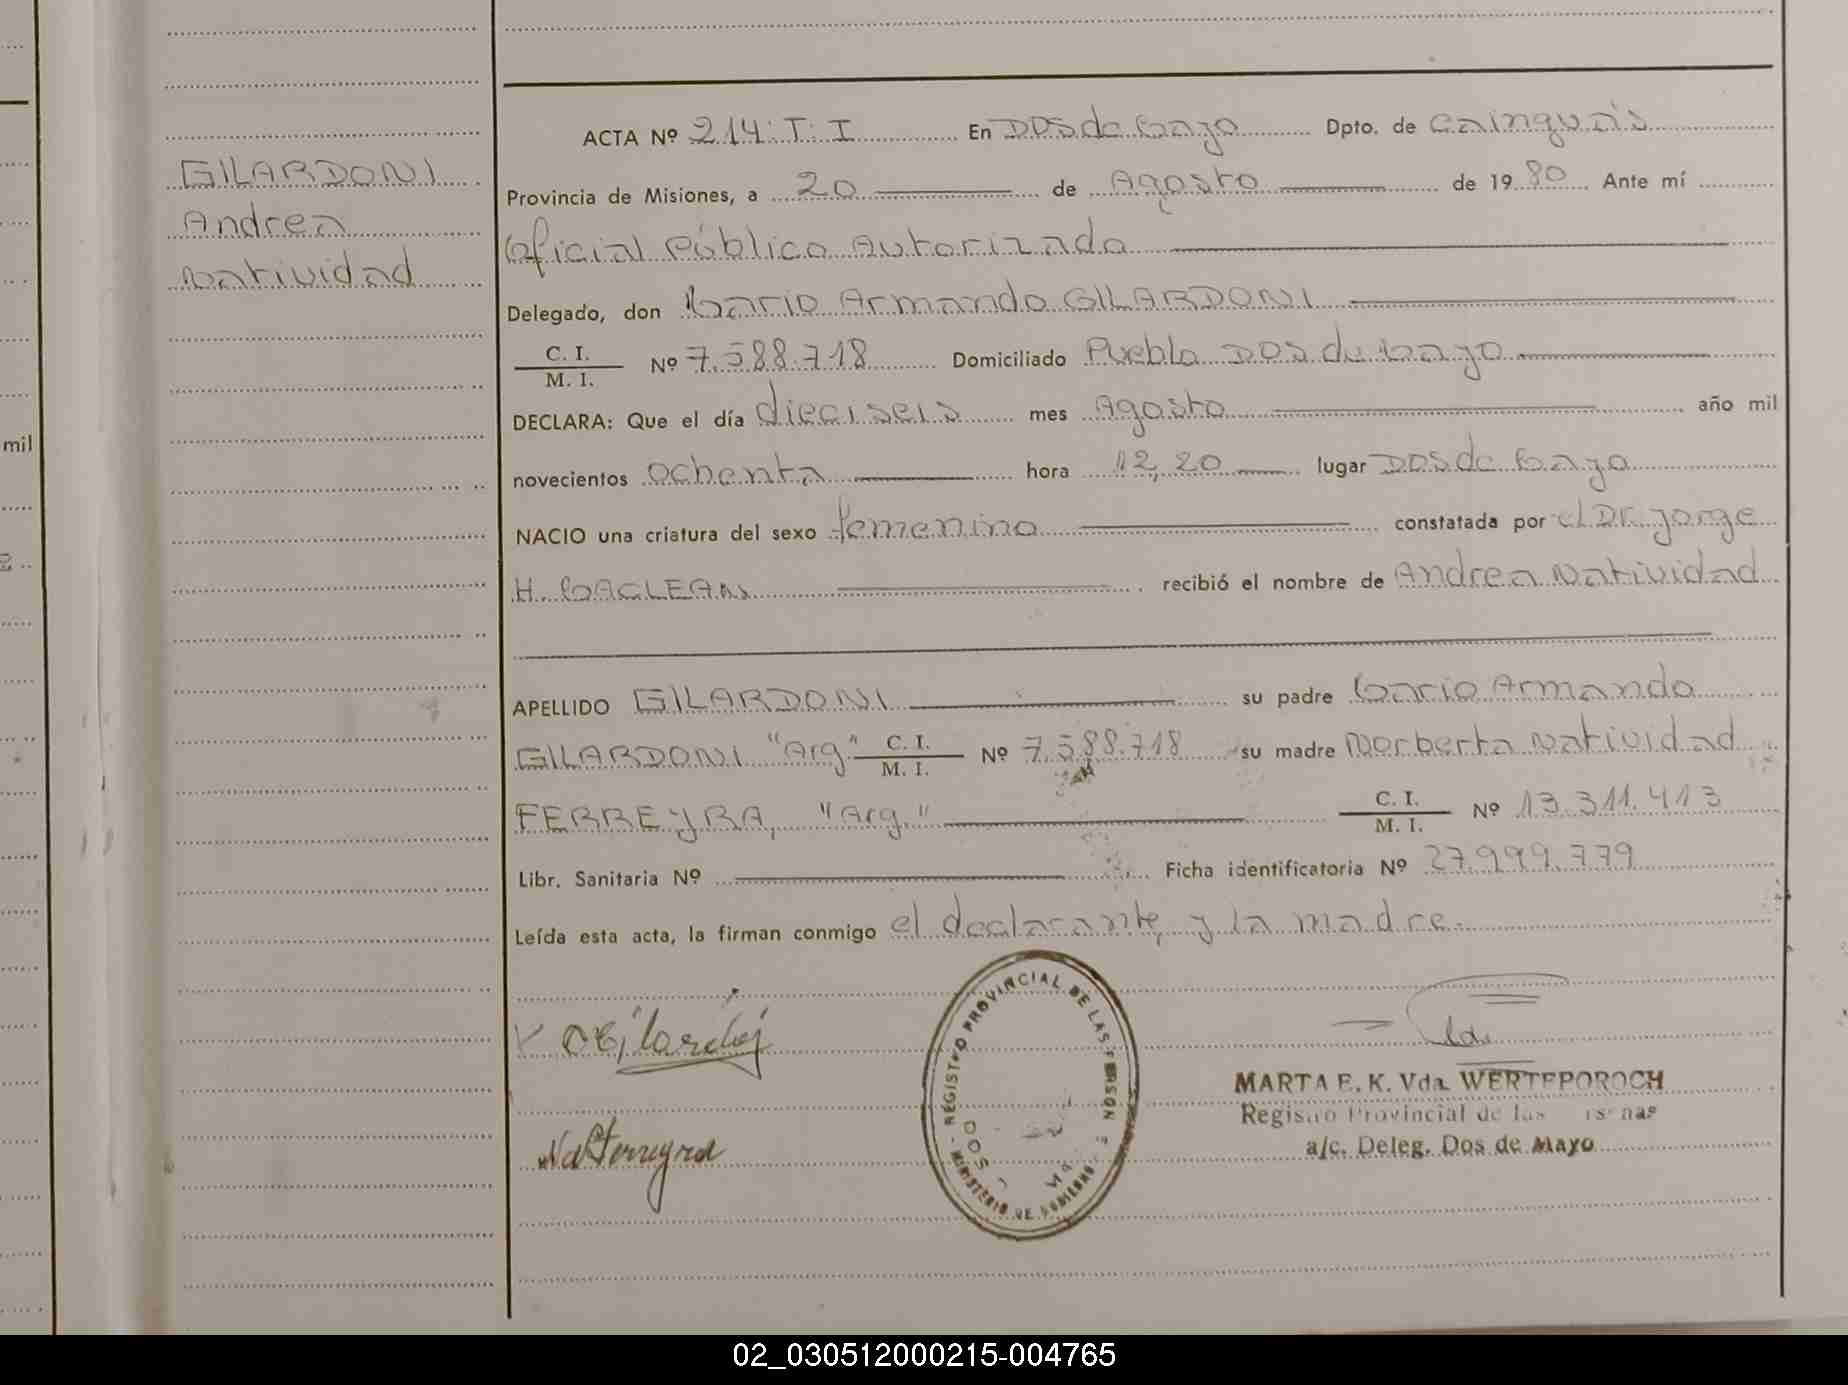 GILARDONI
Andrea
Natividad
ACTA Nº 214: T: I En Dos de Mayo Dpto. de Cainguás
Provincia de Misiones, a 20 de Agosto de 1980 Ante mí
Oficial Público Autorizado
Delegado, don Mario Armando GILARDONI
C. I.
M. I.
Nº 7.588.718 Domiciliado Pueblo Dos de Mayo
DECLARA: Que el día dieciseis mes Agosto año mil
novecientos ochenta hora 12,20 lugar Dos de Mayo
NACIO una criatura del sexo femenino constatada por el Dr. Jorge
H. MACLEAN recibió el nombre de Andrea Natividad
APELLIDO GILARDONI su padre Mario Armando
GILARDONI "Arg" C. I.
M. I.
Nº 7.588.718 su madre Norberta Natividad
FERREYRA, "Arg." C. I.
M. I.
Nº 13.311.413
Libr. Sanitaria Nº Ficha identificatoria Nº 27.999.779
Leída esta acta, la firman conmigo el declarante, y la madre.
REGISTRO PROVINCIAL DE LAS PERSONAS
MINISTERIO DE GOBIERNO
DOS
MARTA E. K. Vda. WERTEPOROCH
Registro Provincial de las Personas
a/c. Deleg. Dos de Mayo
mil
02_030512000215-004765